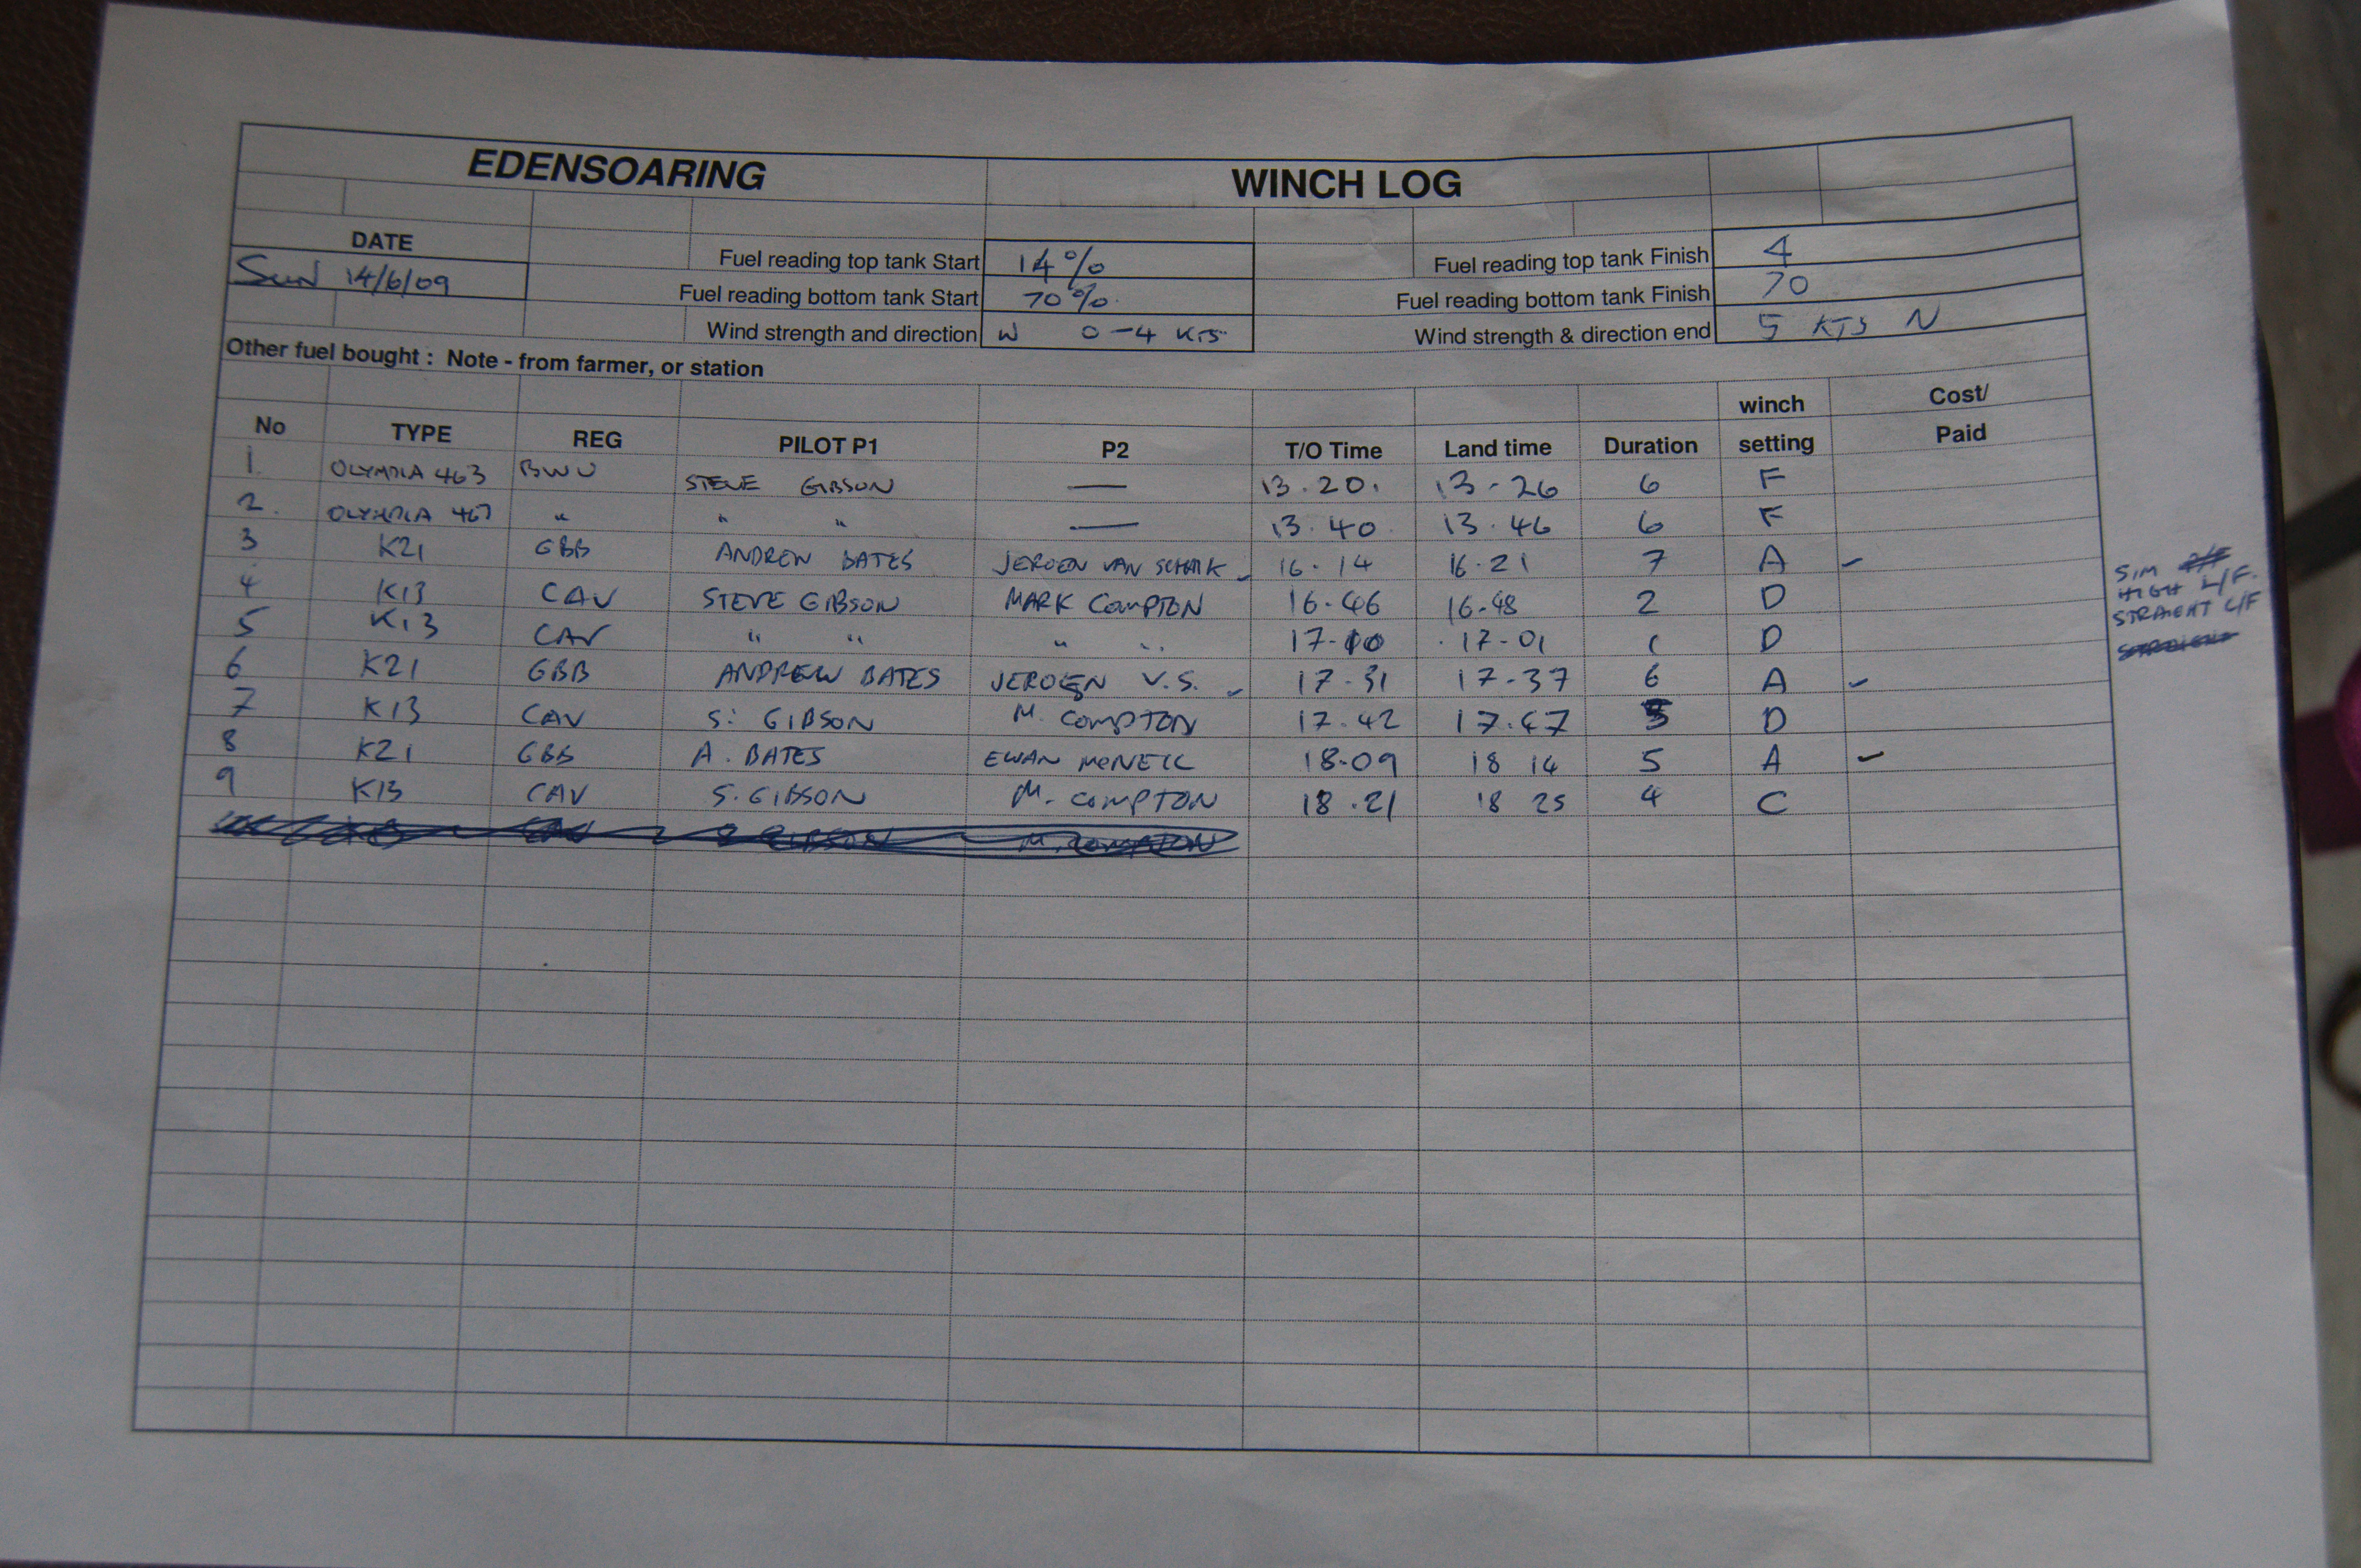 EDENSOARING WINCH LOG
DATE Fuel reading top tank Start 14% Fuel reading top tank Finish 4
Sun 14/6/09 Fuel reading bottom tank Start 70% Fuel reading bottom tank Finish 70
Wind strength and direction W 0-4 KTS Wind strength & direction end 5 KTS N
Other fuel bought : Note - from farmer, or station
No TYPE REG PILOT P1 P2 T/O Time Land time Duration winch setting Cost/ Paid
1. OLYMPIA 463 BWU STEVE GIBSON — 13.20. 13-26 6 F
2. OLYMPIA 463 " " " — 13.40 13.46 6 F
3 K21 GBB ANDREW BATES JEROEN VAN SCHAIK 16.14 16.21 7 A
4 K13 CAV STEVE GIBSON MARK COMPTON 16-46 16-48 2 D
5 K13 CAV " " " " 17-00 17-01 1 D
6 K21 GBB ANDREW BATES JEROEN V.S. 17-31 17-37 6 A
7 K13 CAV S. GIBSON M. COMPTON 17.42 17.47 5 D
8 K21 GBB A. BATES EWAN MCNEIL 18-09 18 14 5 A
9 K13 CAV S. GIBSON M. COMPTON 18.21 18 25 4 C
S GIBSON M. COMPTON
SIM
HIGH L/F.
STRAIGHT L/F